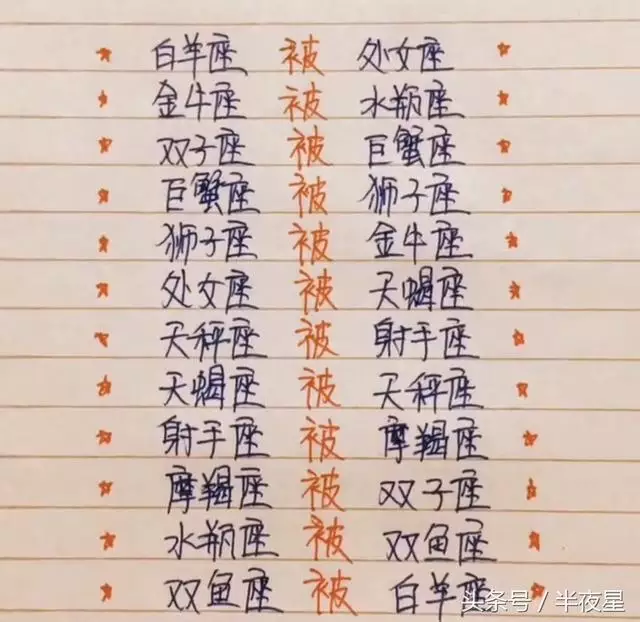 白羊座 被 处女座
金牛座 被 水瓶座
双子座 被 巨蟹座
巨蟹座 被 狮子座
狮子座 被 金牛座
处女座 被 天蝎座
天秤座 被 射手座
天蝎座 被 天秤座
射手座 被 摩羯座
摩羯座 被 双子座
水瓶座 被 双鱼座
双鱼座 被 白羊座
头条号 / 半夜星